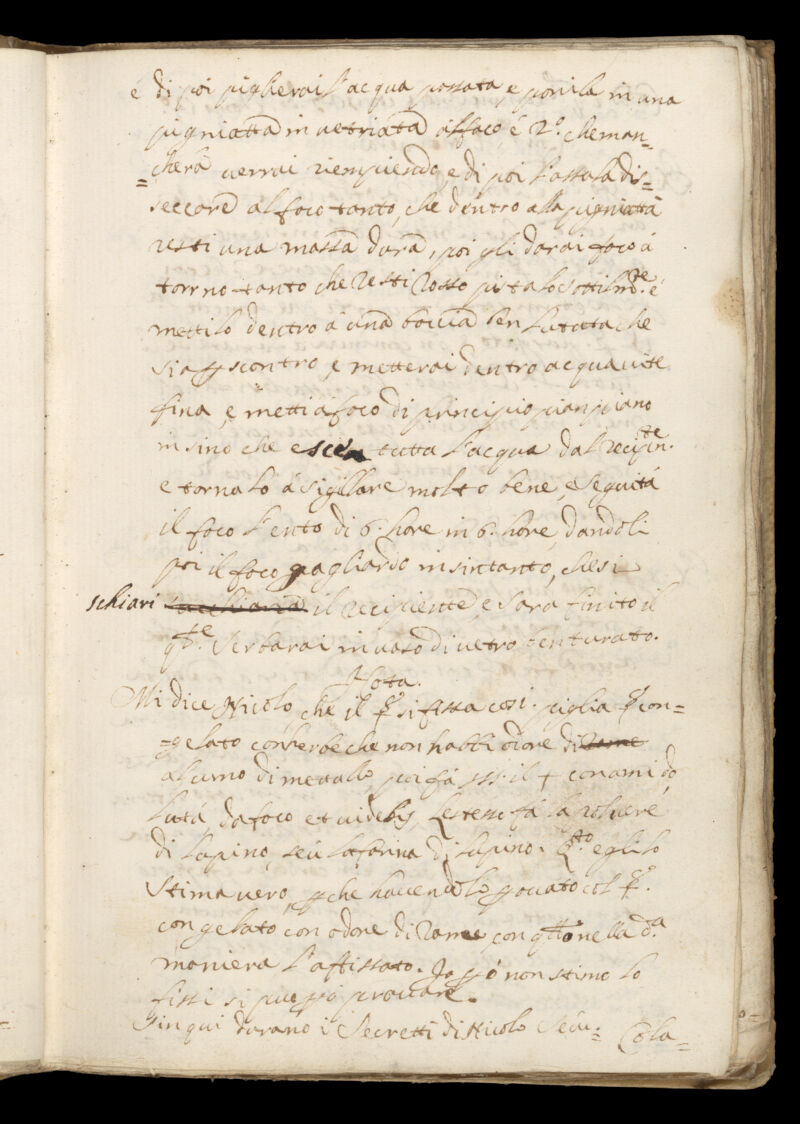 é di poi piglierai l'acqua passata, e ponila in una
pigniatta in uetriata al foco, é q.o che man=
=cherà uerrai riempiendo, e di poi lassala dis=
seccare al foco tanto, che dentro alla pigniatta
resti una massa dura, poi gli darai foco á
torno tanto che resti rosso pistalo sottilm.te é
mettilo dentro á una boccia ben lutata che
sia scontro, e metterai dentro acqua uite
fina, e metti á foco di principio pian piano
in sino che esca tutta l'acqua dal recipin.te
e tornalo á sigillare molto bene, e seguita
il foco lento di 6. hore in 6. hore, dandoli
poi il foco gagliardo insintanto, che si
schiari il recipiente, e sara finito il
q.te serbarai in uaso di uetro ben turato.
Nota.
Mi dice Nicolo, che il ☿ si fissa cosi. piglia ☿ con=
=gelato con herbe che non habbi odore di rame
alcuno di metallo, poi fá il con amido,
luta da foco et uidebis, l'estesso fá la poluere
di lupino, seu la farina di lupino. q.to egli lo
stima uero, che hauendolo prouato col ☿.
congelato con odore di Rame con q.tto nella d.a
maniera l'affissato. Io però non stimo lo
fissi si può però prouare.
Sin qui durano i Secretti di Nicolo Seu=
Cola=